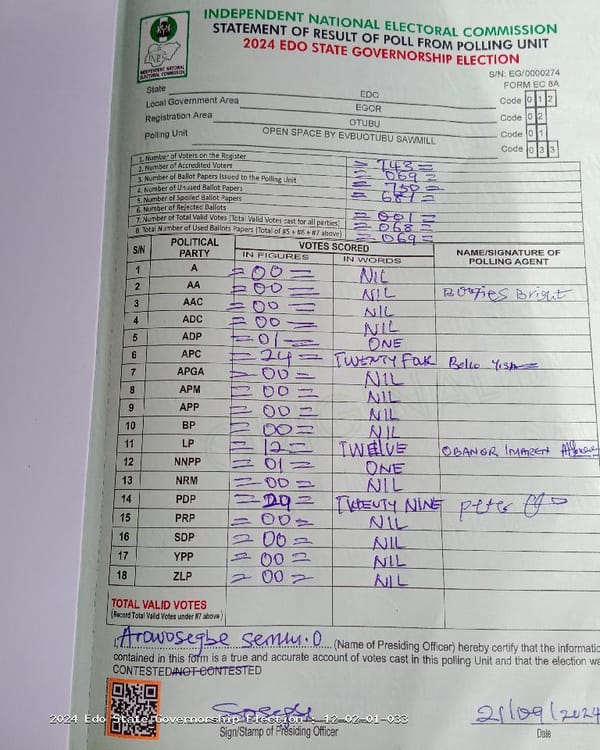 INDEPENDENT NATIONAL ELECTORAL COMMISSION
STATEMENT OF RESULT OF POLL FROM POLLING UNIT
2024 EDO STATE GOVERNORSHIP ELECTION
INDEPENDENT NATIONAL
ELECTORAL COMMISSION
S/N: EG/0000274
FORM EC 8A
State EDO Code 0 1 2
Local Government Area EGOR Code 0 2
Registration Area OTUBU Code 0 1
Polling Unit OPEN SPACE BY EVBUOTUBU SAWMILL Code 0 3 3
1. Number of Voters on the Register = 743 =
2. Number of Accredited Voters = 069 =
3. Number of Ballot Papers Issued to the Polling Unit = 750 =
4. Number of Unused Ballot Papers = 681 =
5. Number of Spoiled Ballot Papers
6. Number of Rejected Ballots = 001 =
7. Number of Total Valid Votes (Total Valid Votes cast for all parties) = 068 =
8. Total Number of Used Ballots Papers (Total of #5 + #6 + #7 above) = 069 =
S/N POLITICAL PARTY VOTES SCORED NAME/SIGNATURE OF POLLING AGENT
IN FIGURES IN WORDS
1 A = 00 = NIL
2 AA = 00 = NIL Bright
3 AAC = 00 = NIL
4 ADC = 00 = NIL
5 ADP = 01 = ONE
6 APC = 24 = TWENTY FOUR Bello
7 APGA = 00 = NIL
8 APM = 00 = NIL
9 APP = 00 = NIL
10 BP = 00 = NIL
11 LP = 12 = TWELVE OBANOR IMAREN
12 NNPP = 01 = ONE
13 NRM = 00 = NIL
14 PDP = 29 = TWENTY NINE Peter
15 PRP = 00 = NIL
16 SDP = 00 = NIL
17 YPP = 00 = NIL
18 ZLP = 00 = NIL
TOTAL VALID VOTES
(Record Total Valid Votes under #7 above)
I, Arowosegbe Semiu.O (Name of Presiding Officer) hereby certify that the informatio
contained in this form is a true and accurate account of votes cast in this polling Unit and that the election wa
CONTESTED/NOT CONTESTED
2024 Edo State Governorship Election : 12-02-01-033
21/09/2024
Sign/Stamp of Presiding Officer Date